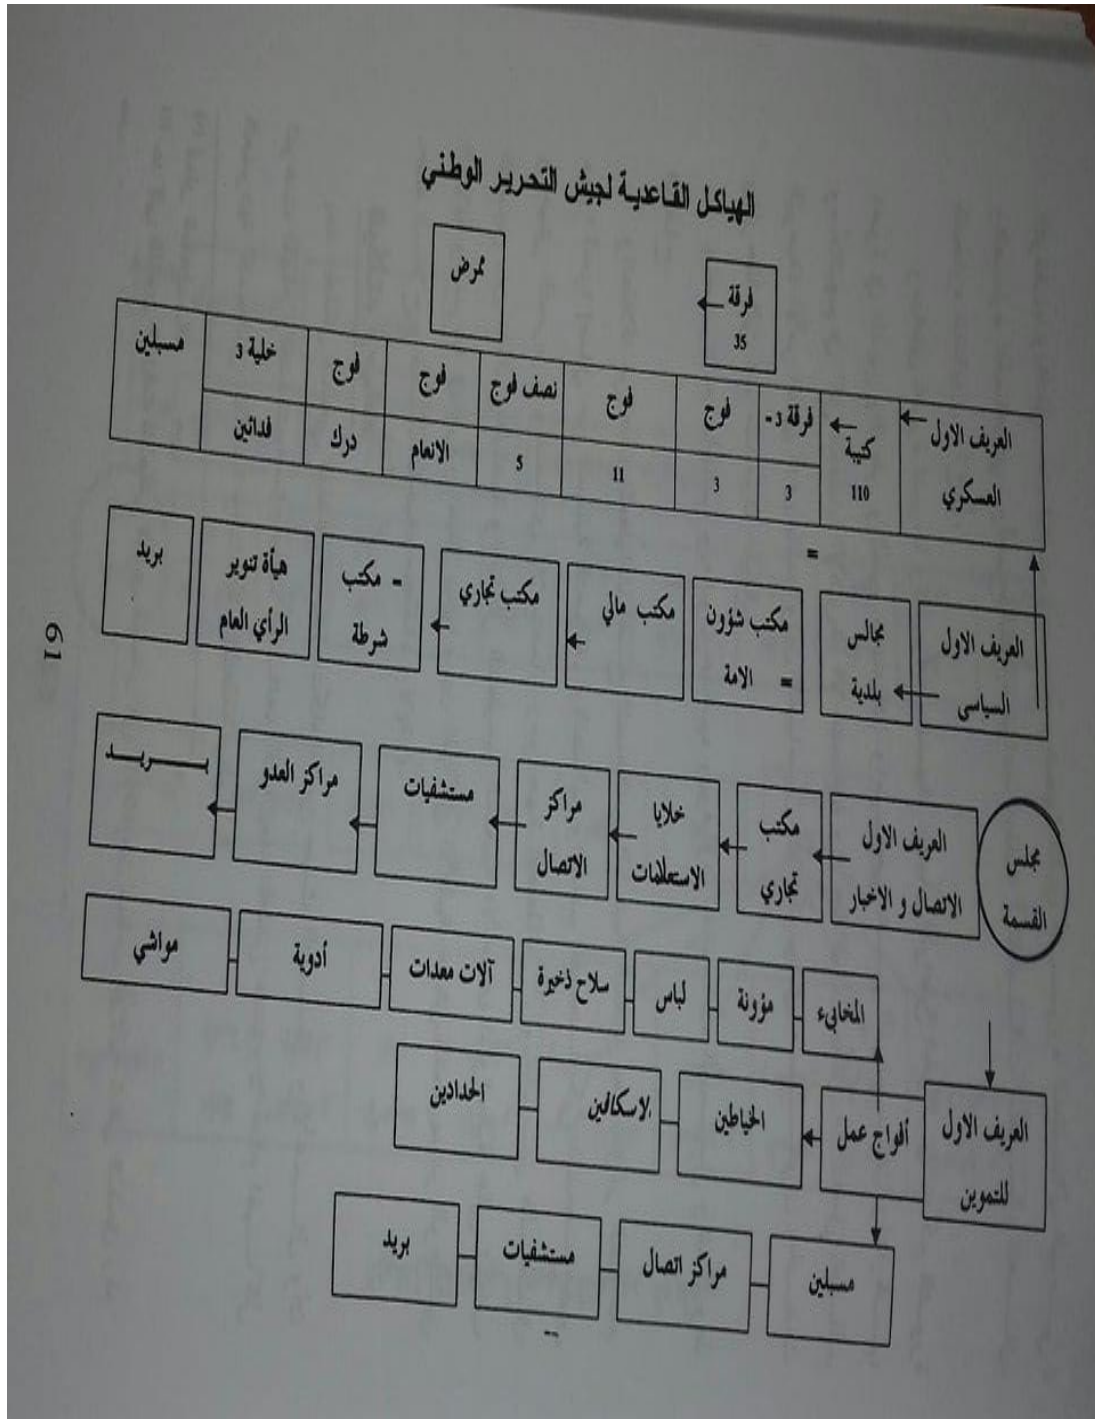 الهياكل القاعدية لجيش التحرير الوطني
فرقة
35
ممرض
العريف الاول
العسكري
كتيبة
110
فرقة 3 -
3
فوج
3
فوج
11
نصف فوج
5
فوج
الانعام
فوج
درك
خلية 3
فدائين
مسبلين
=
العريف الاول
السياسي
مجالس
بلدية
مكتب شؤون
الامة =
مكتب مالي
مكتب تجاري
- مكتب
شرطة
هيأة تنوير
الرأي العام
بريد
مجلس
القسمة
العريف الاول
الاتصال و الاخبار
مكتب
تجاري
خلايا
الاستعلامات
مراكز
الاتصال
مستشفيات
مراكز العدو
بـــريـــد
المخابىء
مؤونة
لباس
سلاح ذخيرة
آلات معدات
أدوية
مواشي
العريف الاول
للتموين
أفواج عمل
الخياطين
الاسكافين
الحدادين
مسبلين
مراكز اتصال
مستشفيات
بريد
61